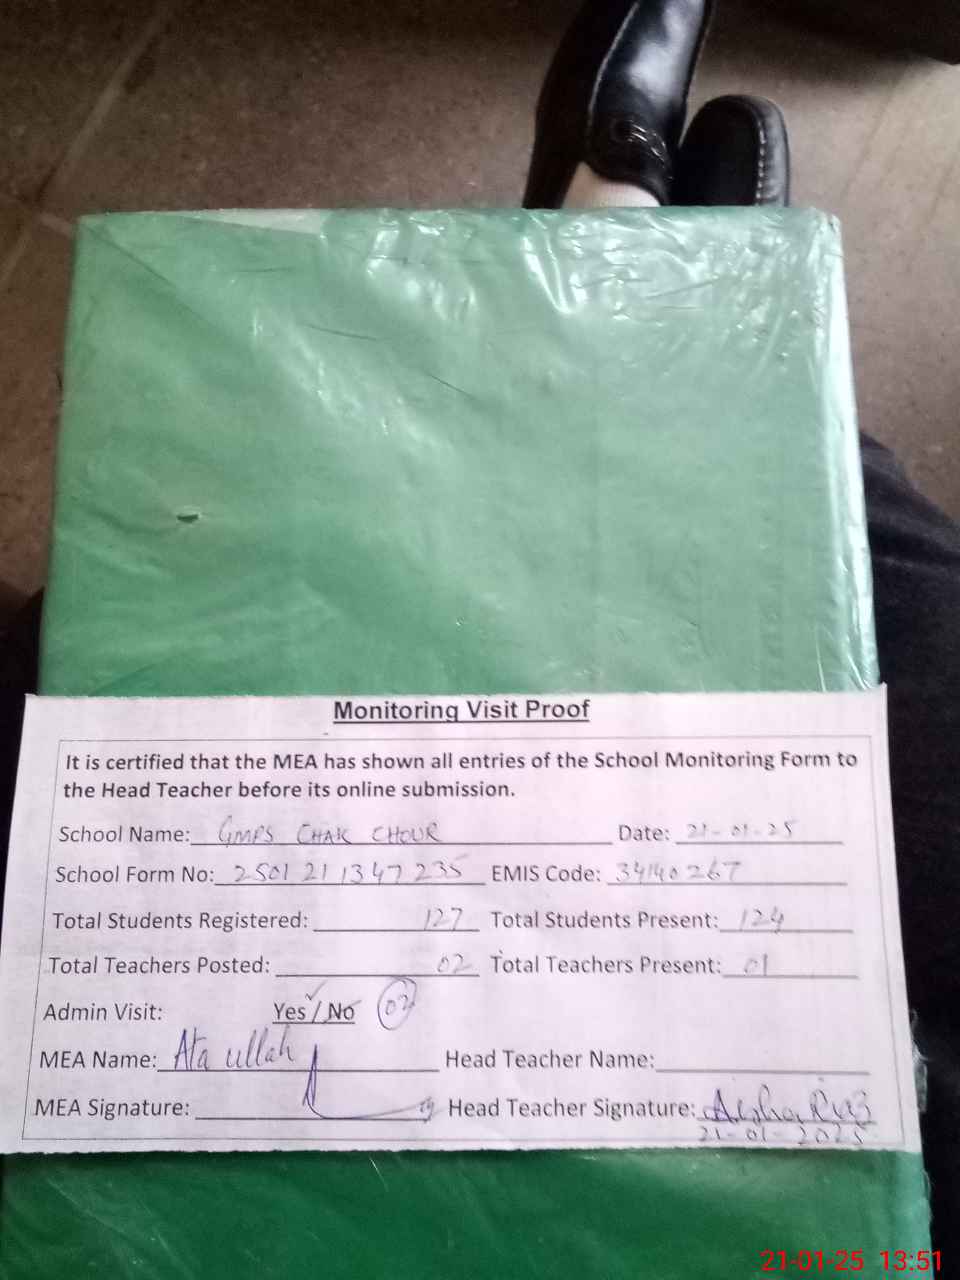 Monitoring Visit Proof
It is certified that the MEA has shown all entries of the School Monitoring Form to
the Head Teacher before its online submission.
School Name: GMPS CHAK CHOUR Date: 21-01-25
School Form No: 2501 21 1347 235 EMIS Code: 34140267
Total Students Registered: 127 Total Students Present: 124
Total Teachers Posted: 02 Total Teachers Present: 01
Admin Visit: Yes ✓ / No 02
MEA Name: Ata ullah Head Teacher Name:
MEA Signature: Head Teacher Signature: Aisha
21-01-2025
21-01-25 13:51